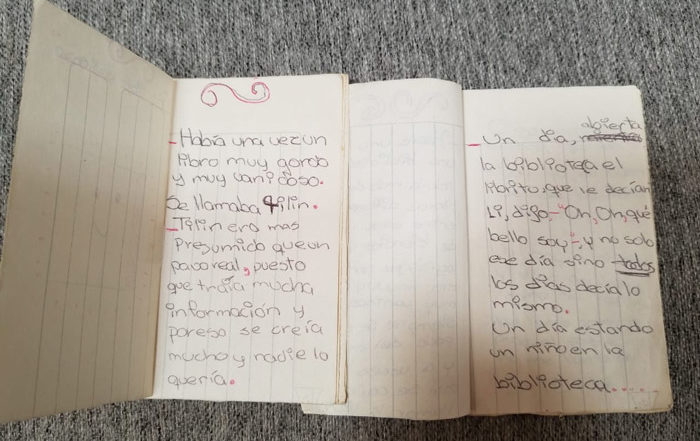 -Había una vez un
libro muy gordo
y muy vanidoso.
Se llamaba Tilin.
-Tilin era mas
presumido que un
pavo real, puesto
que traía mucha
información y
por eso se creía
mucho y nadie lo
quería.
abierta
- Un día,
la biblioteca el
librito, que le decían
Li, dijo-"Oh, Oh, qué
bello soy"-, y no solo
ese día sino todos
los dias decía lo
mismo.
Un día estando
un niño en la
biblioteca.....